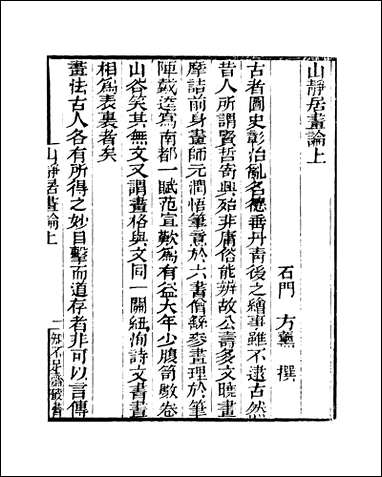 山靜居畫論上
石門 方薰 撰
古者圖史彰治亂名德垂丹青後之繪事雖不逮古然
昔人所謂賢哲寄興殆非庸俗能辨故公壽多文曉畫
摩詰前身畫師元潤悟筆意於六書僧繇參畫理於筆
陣戴逵寫南都一賦范宣歎為有益大年少腹笥數卷
山谷笑其無文又謂畫格與文同一關紐洵詩文書畫
相為表裏者矣
畫法古人各有所得之妙目擊而道存者非可以言傳
山靜居畫論上
一
知不足齋叢書